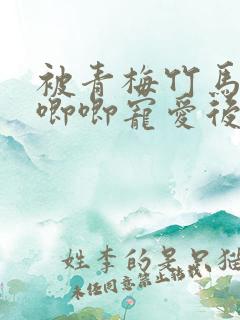 被青梅竹馬
唧唧寵愛後
姓李的呆呆猫
未经同意禁止转载